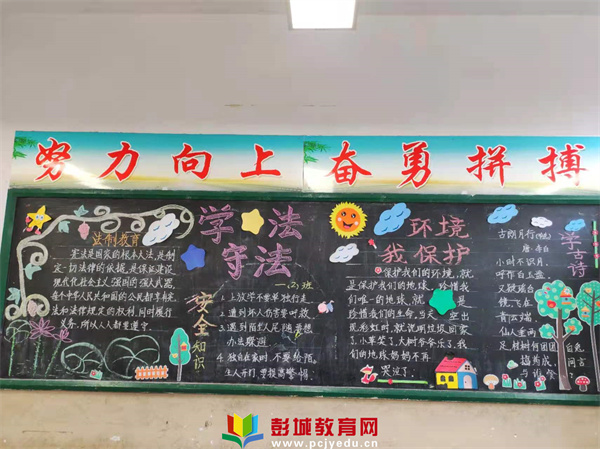 努力向上 奋勇拼搏
法制教育
宪法是国家的根本大法,是制
定一切法律的依据,是保证建设
现代化社会主义强国的强大武器,
每个中华人民共和国的公民都享有宪
法和法律规定的权利,同时履行
义务,所以人人都要遵守。
学法
守法
一(2)班
安全知识
1.上放学不要单独行走
2.遇到坏人伤害要呼救
3.遇到陌生人尾随要想
办法躲避
4.独自在家时,不要给陌
生人开门,要提高警惕.
环境
我保护
保护我们的地球,就
是保护我们的家,珍惜我
们唯一的地球,就
惜我们的生命,当天空出
现彩虹时,就说明垃圾回家
了,小草笑了,大树爷爷乐了,我
们的地球妈妈不再
哭泣了.
学古诗
古朗月行
唐 李白
小时不识月,
呼作白玉盘
又疑瑶台
镜,飞在
青云端
仙人垂两
足,桂树何团团
白兔
捣药成,
问言
与谁餐
彭城教育网
www.pcjyedu.cn